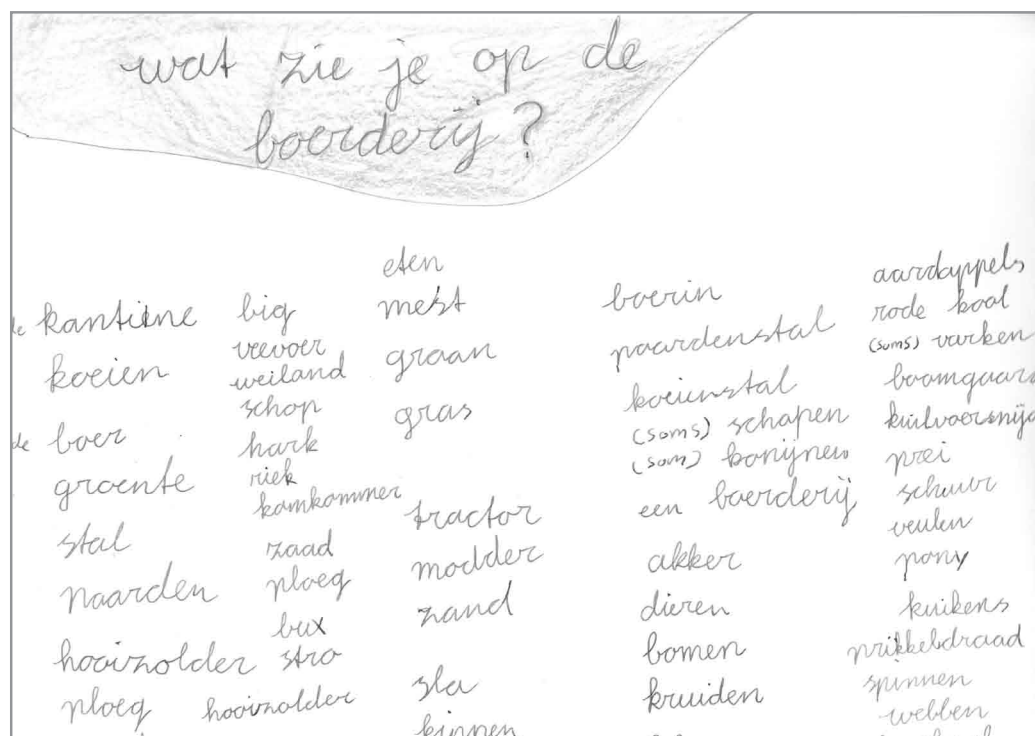 wat zie je op de
boerderij?
de kantiene
koeien
de boer
groente
stal
paarden
hooizolder
ploeg
big
veevoer
weiland
schop
hark
riek
komkommer
zaad
ploeg
bux
stro
hooizolder
eten
mest
graan
gras
tractor
modder
zand
sla
kippen
boerin
paardenstal
koeienstal
(soms) schapen
(soms) konijnen
een boerderij
akker
dieren
bomen
kruiden
aardappels
rode kool
(soms) varken
boomgaard
kuilvoersnij
prei
schuur
veulen
pony
kuikens
prikkeldraad
spinnen
webben